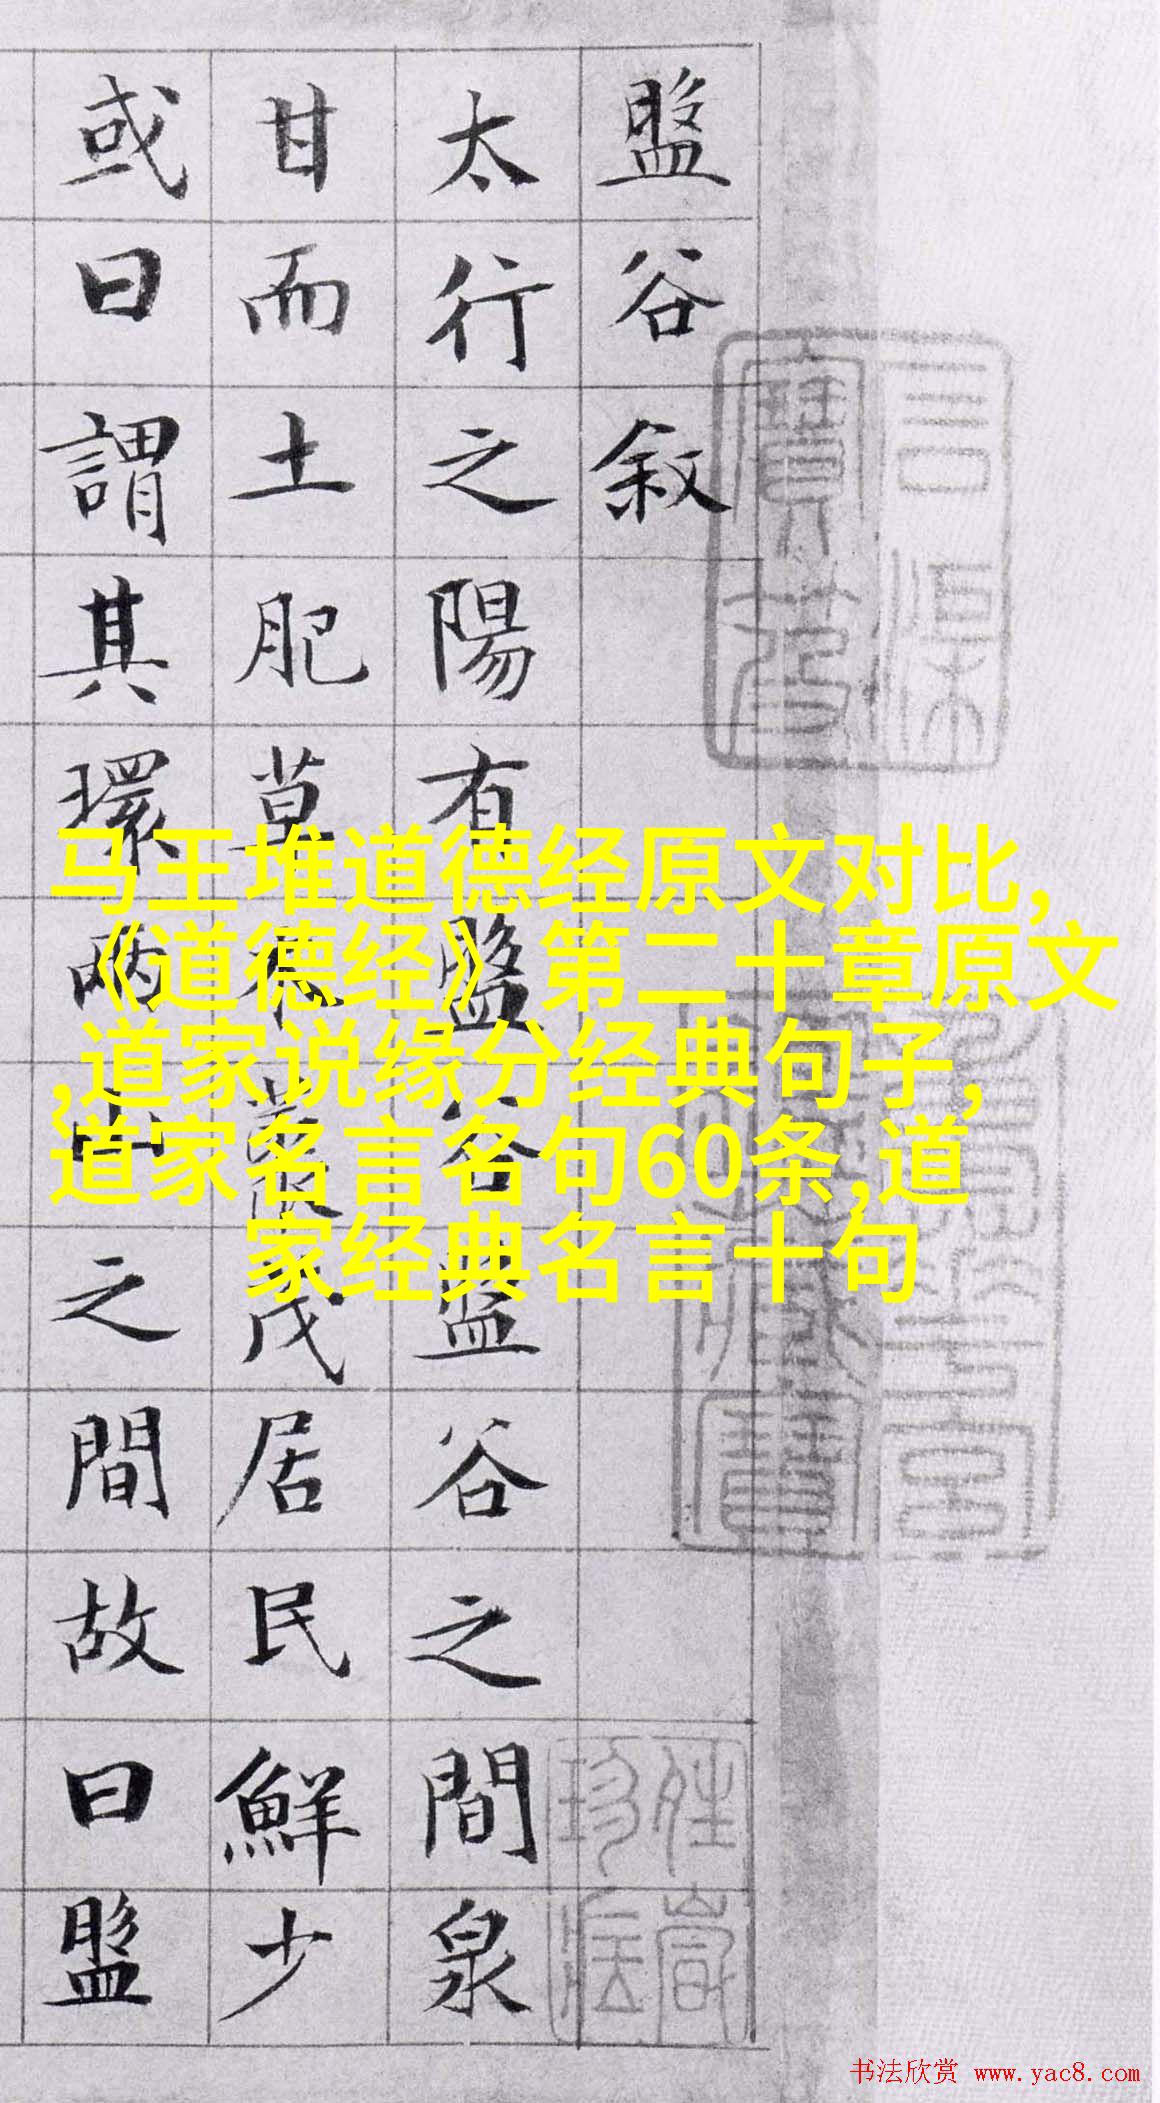 盤谷敘
太行之陽有盤谷盤谷之間泉
甘而土肥草木叢茂居民鮮少
或曰謂其環兩山之間故曰盤
马王堆道德经原文对比,
《道德经》第二十章原文
,道家说缘分经典句子,
道家名言名句60条,道
家经典名言十句
书法欣赏 www.yac8.com